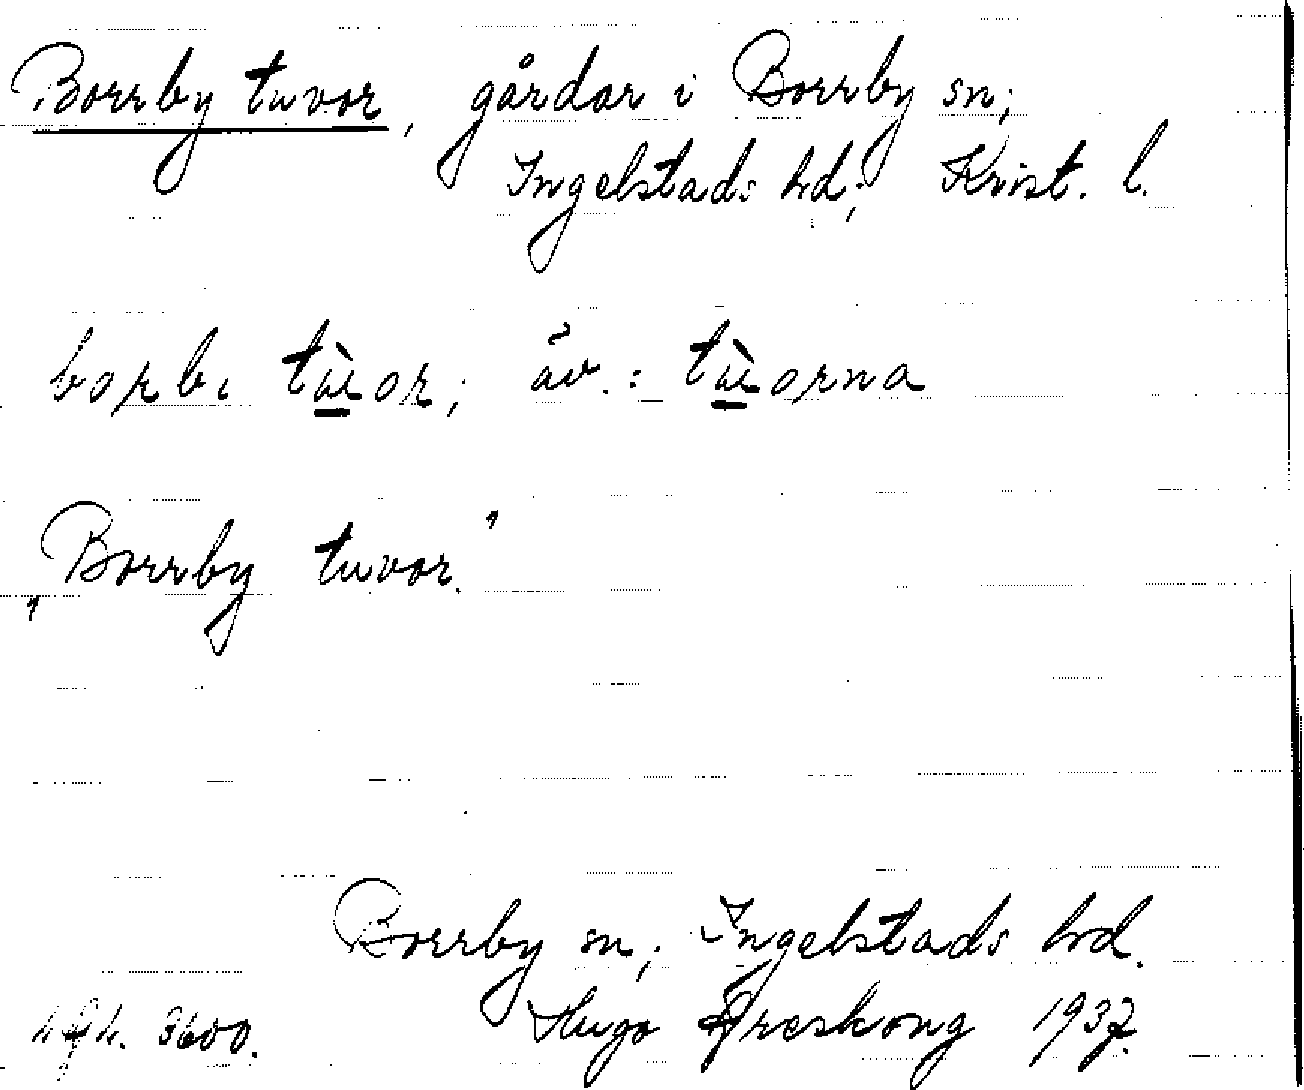 Borrby tuvor, gårdar i Borrby sn;
Ingelstads hd; Krist. l.
borbi tùor; äv.: tùorna
„Borrby tuvor.”
Borrby sn; Ingelstads hd.
3600. Hugo Areskoug 1937.